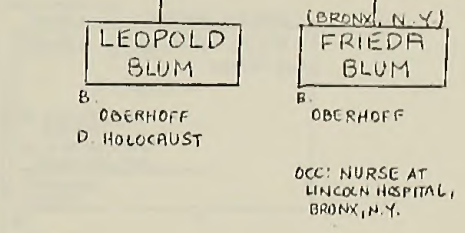 LEOPOLD
BLUM
B.
OBERHOFF
D. HOLOCAUST
(BRONX, N.Y.)
FRIEDA
BLUM
B.
OBERHOFF
OCC: NURSE AT
LINCOLN HOSPITAL,
BRONX, N.Y.